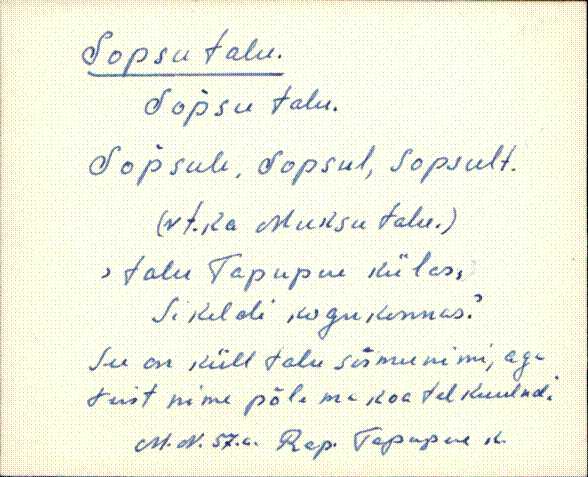 Sopsu talu.
Sop̀su talu.
Sop̀sule, Sopsul, Sopsult.
(vt. ka Muksu talu.)
› talu Tapupere külas,
Sikeldi kogukonnas.?
Su on küll talu sõrmunimi, aga
nime põle ma koa
M.N. 57.a. Rap. Tapupere k.